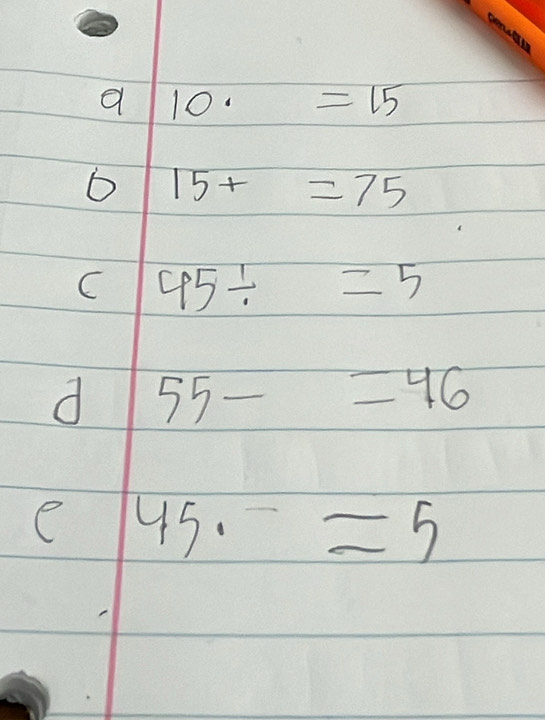 a 10· =15
b 15+ =75
c 45÷ =5
d 55- =46
e 45·- =5